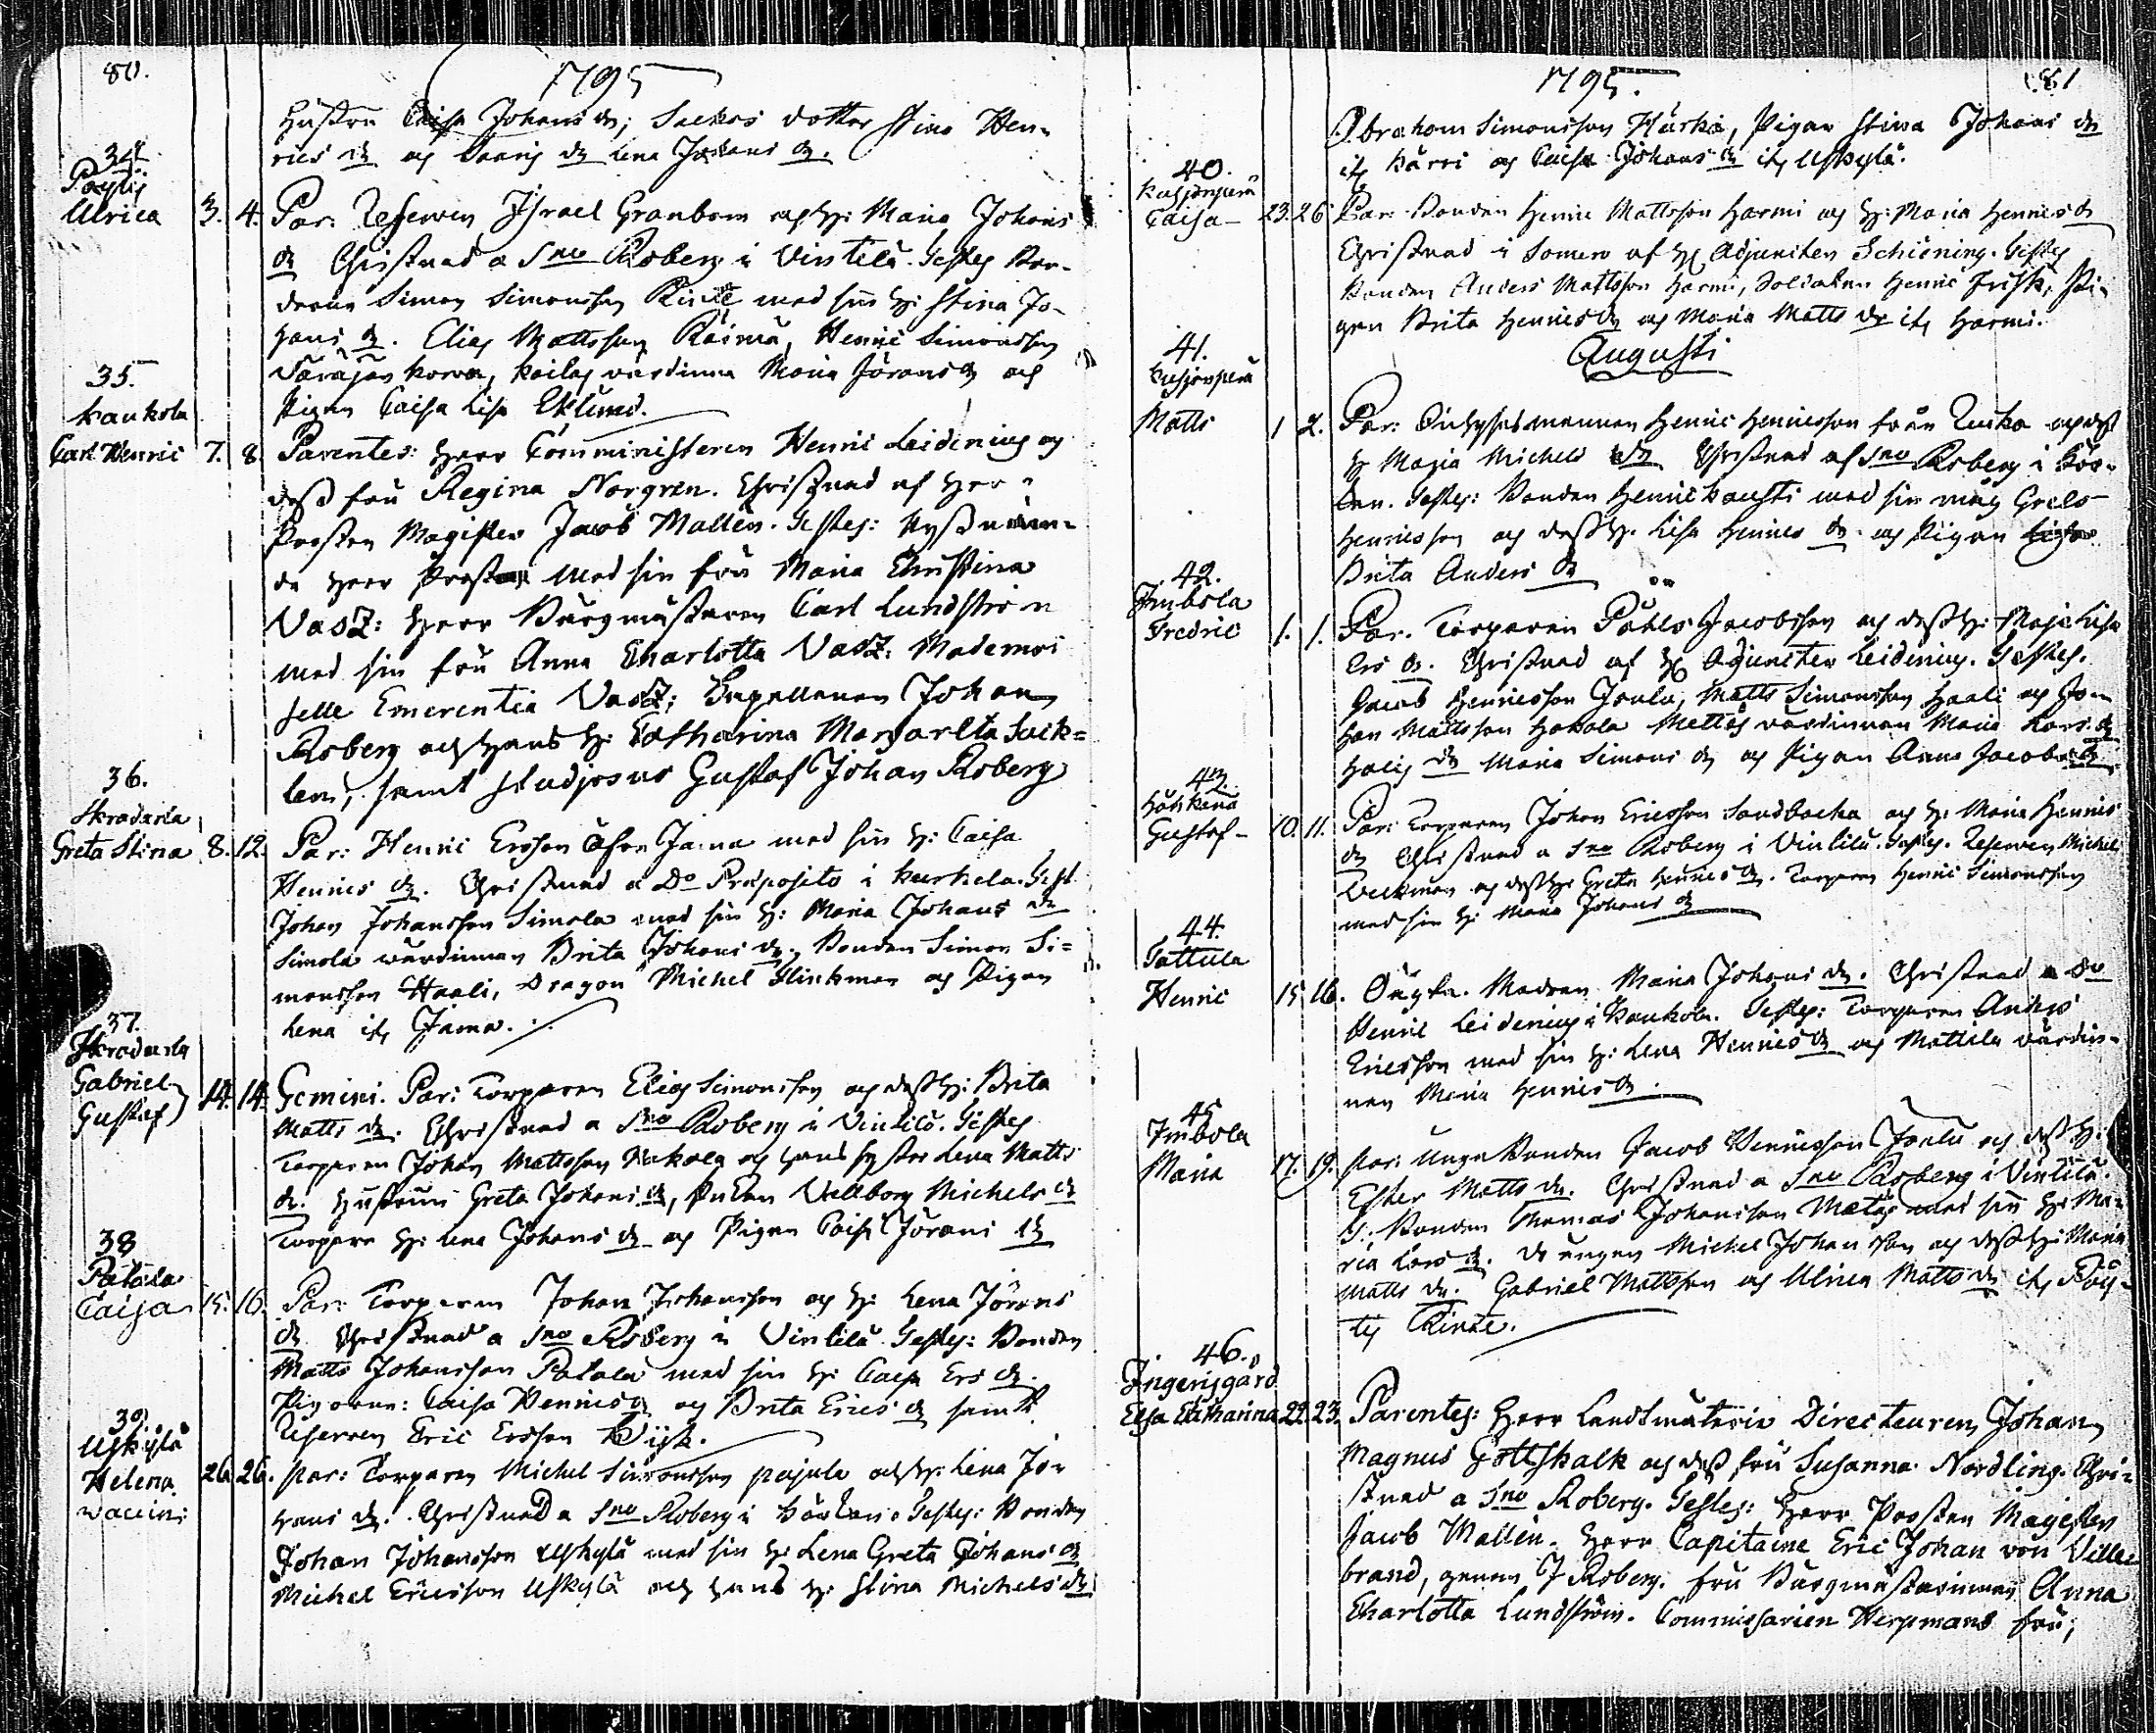 80.
1795
Hustru Caisa Johans dr; Suckos dotter Stina Hen-
rics dr och Saaris dr Lena Johans dr.
34.
Pöytiö
Ulrica 3. 4. Par: Reserven Israel Granbom och H: Maria Johans
dr Christnad a Sno Roberg i Vintilä. Testes Bon-
den Simon Simonsson med sin H: Stina Jo-
hans dr. Elias Mattsson Räimä, Henric Simonsson
värdinna Maria Jörans dr och
Pigan Caisa Lisa Eklund.
35.
Kaukola
Carl Henric 7. 8. Parentes: Herr Comministeren Henric Leidenius og
dess fru Regina Norgren. Christnad af Herr
Prosten Magister Jacob Mallén. Testes: Hysnäm-
de Herr Prosten med sin fru Maria Christina
Vasz: Herr Burgmästaren Carl Lundström
med sin fru Anna Charlotta Vasz. Mademoi
selle Emerentia Vasz; Capellanen Johan
Roberg och hans H: Catharina Margareta Sack-
len, samt studiosus Gustaf Johan Roberg
36.
Skradarla
Greta Stina 8. 12. Par: Henric Ersson Jama med sin H: Caisa
Henrics dr. Christnad a Do Præposito i Kurkela. Test.
Johan Johansson Simola med sin H: Maria Johans dr
Simola wärdinnan Brita Johans dr, Bonden Simon Si=
monsson Haali, Dragon Michel Flinkman og Pigan
Lena ifr Jama.
37.
Skradarla
Gabriel
Gustaf 14. 14. Gemini. Par: Torparen Elias Simonsson og dess H: Brita
Matts dr. Christnad a Sno Roberg i Vintilä. Testes
Torparen Johan Mattsson og hans syster Lena Matts
dr. Hustrun Greta Johans dr, Enkan Vallborg Michels dr
Torpare H: Lena Johans dr og Pigan Caisa Jörans dr
38
Palala
Caisa 15. 16. Par: Torparen Johan Johansson og H: Lena Jörans
dr Christnad a Sno Roberg i Vintilä Testes: Bonden
Matts Johansson Palala med sin H: Caisa Ers dr.
Pigorna: Caisa Henrics dr og Brita Erics dr samt
Reserven Eric Ersson
39.
Uskylä
Helena 26. 26. Par: Torparen Michel Simonsson pajula och H: Lena Jo-
vaccin: hans dr. Christnad a Sno Roberg i Testes: Bonden
Johan Johansson Uskylä med sin H: Lena Greta Johans dr
Michel Ericsson Uskylä och hans H: Stina Michels dr
1795.
81
Abraham Simonsson Kärki, Pigan Stina Johans dr
ifr Kärri og Caisa Johans dr ifr Uskylä.
40.
Kusjonperä
Caisa - 23. 26 Par: Bonden Henric Mattsson Harmi og H: Maria Henrics dr
Christnad i Somero af H: Adjuncten Schiöning. Testes
Bonden Anders Mattsson Harmi, Soldaten Henric Frisk, Pi-
gan Brita Henrics dr og Maria Matts dr ifr Harmi.
Augusti
41.
Kusjonperä
Matts 1 2. Par: Inhysesmannen Henric Henricsson från og dess
H Maria Michels dr Christnad af Sno Roberg i
Testes: Bonden Henric med sin måg Grels
Henricsson og dess H. Lisa Henrics dr og Pigan
Brita Anders dr
42.
Imbola
Fredric 1. 1. Par. Torparen Påhls Jacobsson og dess H: Maja Lisa
Ers dr. Christnad af H: Adjuncten Leidenius. Testes.
Jacob Henricsson Joula, Matts Simonsson Haali og Jo-
han Mattsson Hakala Mattes värdinnan Maria Lars dr
Halis dr Maria Simons dr og Pigan Anna Jacobs dr
43.
Häntälä
Gustaf - 10. 11. Par: Torparen Johan Ericsson Sandbacka og H: Maria Henrics
dr Christnad a Sno Roberg i Vintilä. Testes. Reserven Michel
Veckman og dess H: Greta Henrics dr. Torparen Henric Simonsson
med sin H: Maria Johans dr
44.
Talttula
Henric 15 16. Oägta. Modren Maria Johans dr. Christnad a Do
Henric Leidenius i Kaukola. Testes: Torparen Anders
Ericsson med sin H: Lena Henrics dr og Mattila värdin-
nan Maria Henrics dr.
45
Imbola
Maria 17. 19. Par: Unga Bonden Jacob Henricsson Joulu og dess H:
Ester Matts dr. Christnad a Sno Roberg i Vintilä.
T: Bonden Thomas Johansson Matas med sin H: Ma-
ria Lars dr. Drängen Michel Johansson og dess H: Maria
Matts dr. Gabriel Mattsson og Ulrica Matts dr ifr Pöy-
tis
46.
Ingerisgård
Elsa Catharina 22. 23. Parentes: Herr Landtmäterie Directeuren Johan
Magnus Gottskalk og dess fru Susanna Nordling. Chri-
stnad a Sno Roberg. Testes: Herr Prosten Magister
Jacob Mallén. Herr Capitaine Eric Johan von Ville-
brand, genom J Roberg. Fru Burgmästarinnan Anna
Charlotta Lundström. Commissarien Herpmans fru;